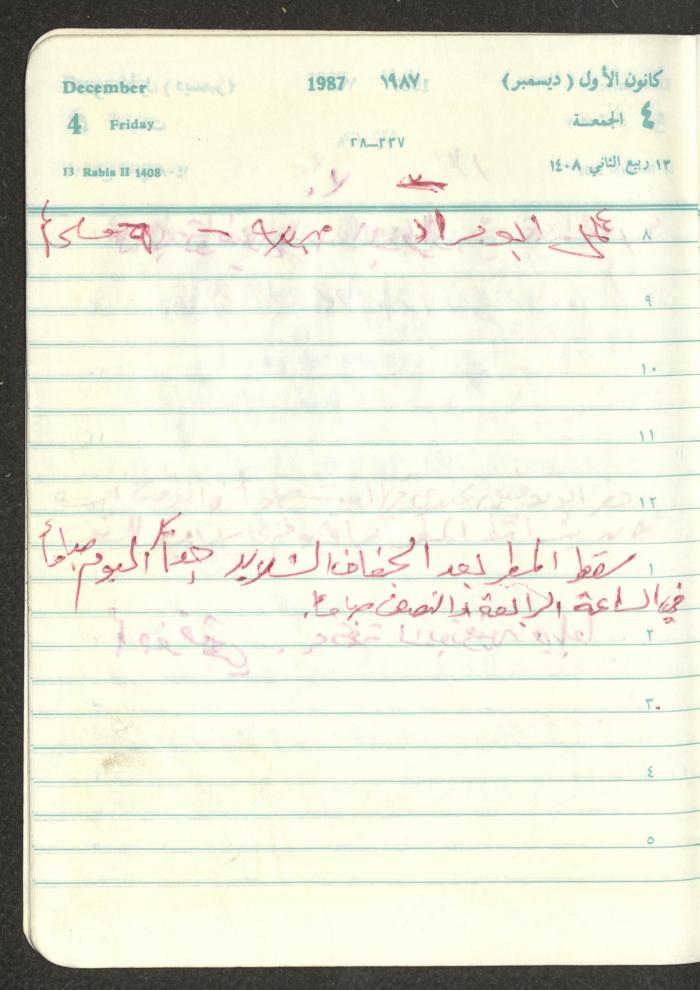 December 1987 ١٩٨٧ كانون الأول (ديسمبر)
4 Friday ٤ الجمعـة
٣٣٧–٢٨
13 Rabia II 1408 ١٣ ربيع الثاني ١٤٠٨
٨ ابو مراد –
٩
١٠
١١
١٢
١ سقط المطر بعد الجفاف الشديد هذا اليوم صباحاً
في الساعة الرابعة والنصف صباحاً.
٢
٣
٤
٥